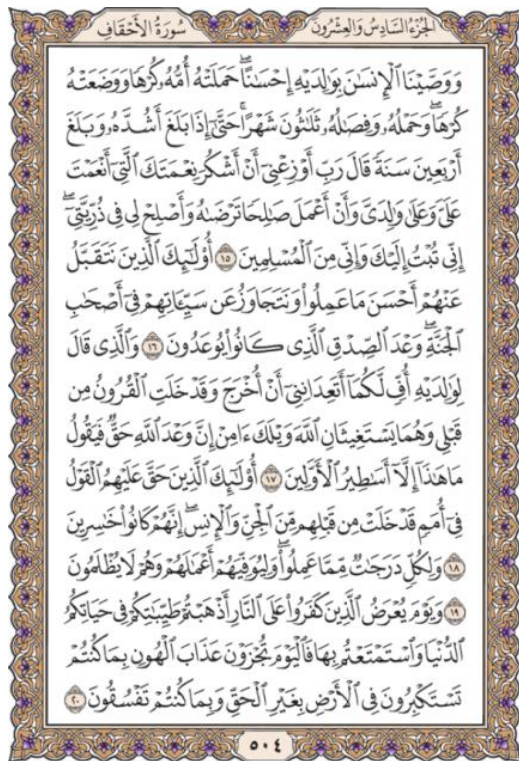 الجزء السادس والعشرون سورة الأحقاف
وَوَصَّيْنَا ٱلْإِنسَٰنَ بِوَٰلِدَيْهِ إِحْسَٰنًا ۖ حَمَلَتْهُ أُمُّهُۥ كُرْهًا وَوَضَعَتْهُ
كُرْهًا ۖ وَحَمْلُهُۥ وَفِصَٰلُهُۥ ثَلَٰثُونَ شَهْرًا ۚ حَتَّىٰٓ إِذَا بَلَغَ أَشُدَّهُۥ وَبَلَغَ
أَرْبَعِينَ سَنَةً قَالَ رَبِّ أَوْزِعْنِىٓ أَنْ أَشْكُرَ نِعْمَتَكَ ٱلَّتِىٓ أَنْعَمْتَ
عَلَىَّ وَعَلَىٰ وَٰلِدَىَّ وَأَنْ أَعْمَلَ صَٰلِحًا تَرْضَىٰهُ وَأَصْلِحْ لِى فِى ذُرِّيَّتِىٓ ۖ
إِنِّى تُبْتُ إِلَيْكَ وَإِنِّى مِنَ ٱلْمُسْلِمِينَ ١٥ أُو۟لَٰٓئِكَ ٱلَّذِينَ نَتَقَبَّلُ
عَنْهُمْ أَحْسَنَ مَا عَمِلُوا۟ وَنَتَجَاوَزُ عَن سَيِّـَٔاتِهِمْ فِىٓ أَصْحَٰبِ
ٱلْجَنَّةِ ۖ وَعْدَ ٱلصِّدْقِ ٱلَّذِى كَانُوا۟ يُوعَدُونَ ١٦ وَٱلَّذِى قَالَ
لِوَٰلِدَيْهِ أُفٍّ لَّكُمَآ أَتَعِدَانِنِىٓ أَنْ أُخْرَجَ وَقَدْ خَلَتِ ٱلْقُرُونُ مِن
قَبْلِى وَهُمَا يَسْتَغِيثَانِ ٱللَّهَ وَيْلَكَ ءَامِنْ إِنَّ وَعْدَ ٱللَّهِ حَقٌّ فَيَقُولُ
مَا هَٰذَآ إِلَّآ أَسَٰطِيرُ ٱلْأَوَّلِينَ ١٧ أُو۟لَٰٓئِكَ ٱلَّذِينَ حَقَّ عَلَيْهِمُ ٱلْقَوْلُ
فِىٓ أُمَمٍ قَدْ خَلَتْ مِن قَبْلِهِم مِّنَ ٱلْجِنِّ وَٱلْإِنسِ ۖ إِنَّهُمْ كَانُوا۟ خَٰسِرِينَ
١٨ وَلِكُلٍّ دَرَجَٰتٌ مِّمَّا عَمِلُوا۟ ۖ وَلِيُوَفِّيَهُمْ أَعْمَٰلَهُمْ وَهُمْ لَا يُظْلَمُونَ
١٩ وَيَوْمَ يُعْرَضُ ٱلَّذِينَ كَفَرُوا۟ عَلَى ٱلنَّارِ أَذْهَبْتُمْ طَيِّبَٰتِكُمْ فِى حَيَاتِكُمُ
ٱلدُّنْيَا وَٱسْتَمْتَعْتُم بِهَا فَٱلْيَوْمَ تُجْزَوْنَ عَذَابَ ٱلْهُونِ بِمَا كُنتُمْ
تَسْتَكْبِرُونَ فِى ٱلْأَرْضِ بِغَيْرِ ٱلْحَقِّ وَبِمَا كُنتُمْ تَفْسُقُونَ ٢٠
٥٠٤